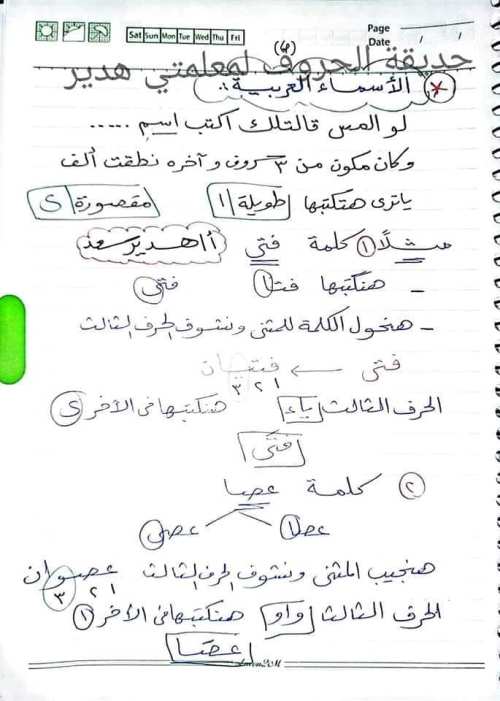 Sat Sun Mon Tue Wed Thu Fri
Page
Date / /
(٤)
حديقة الحروف لمعلمتي هدير
الأسماء العربية :
لو المس قالتلك اكتب اسم .....
وكان مكون من ٣ حروف وآخره نطقت ألف
ياترى هتكتبها طويلة ا مقصورة ى
مثلًا ① كلمة فتى أ/ هدير سعد
- هنكتبها فتا فتى
- هنحول الكلمة للمثنى ونشوف الحرف الثالث
فتى ← فتيان
١ ٢ ٣
الحرف الثالث ياء هنكتبها فى الأخر ى
فتى
② كلمة عصا
عصا عصى
هنجيب المثنى ونشوف الحرف الثالث عصوان
١ ٢ ٣
الحرف الثالث واو هنكتبها فى الأخر ا
عصا